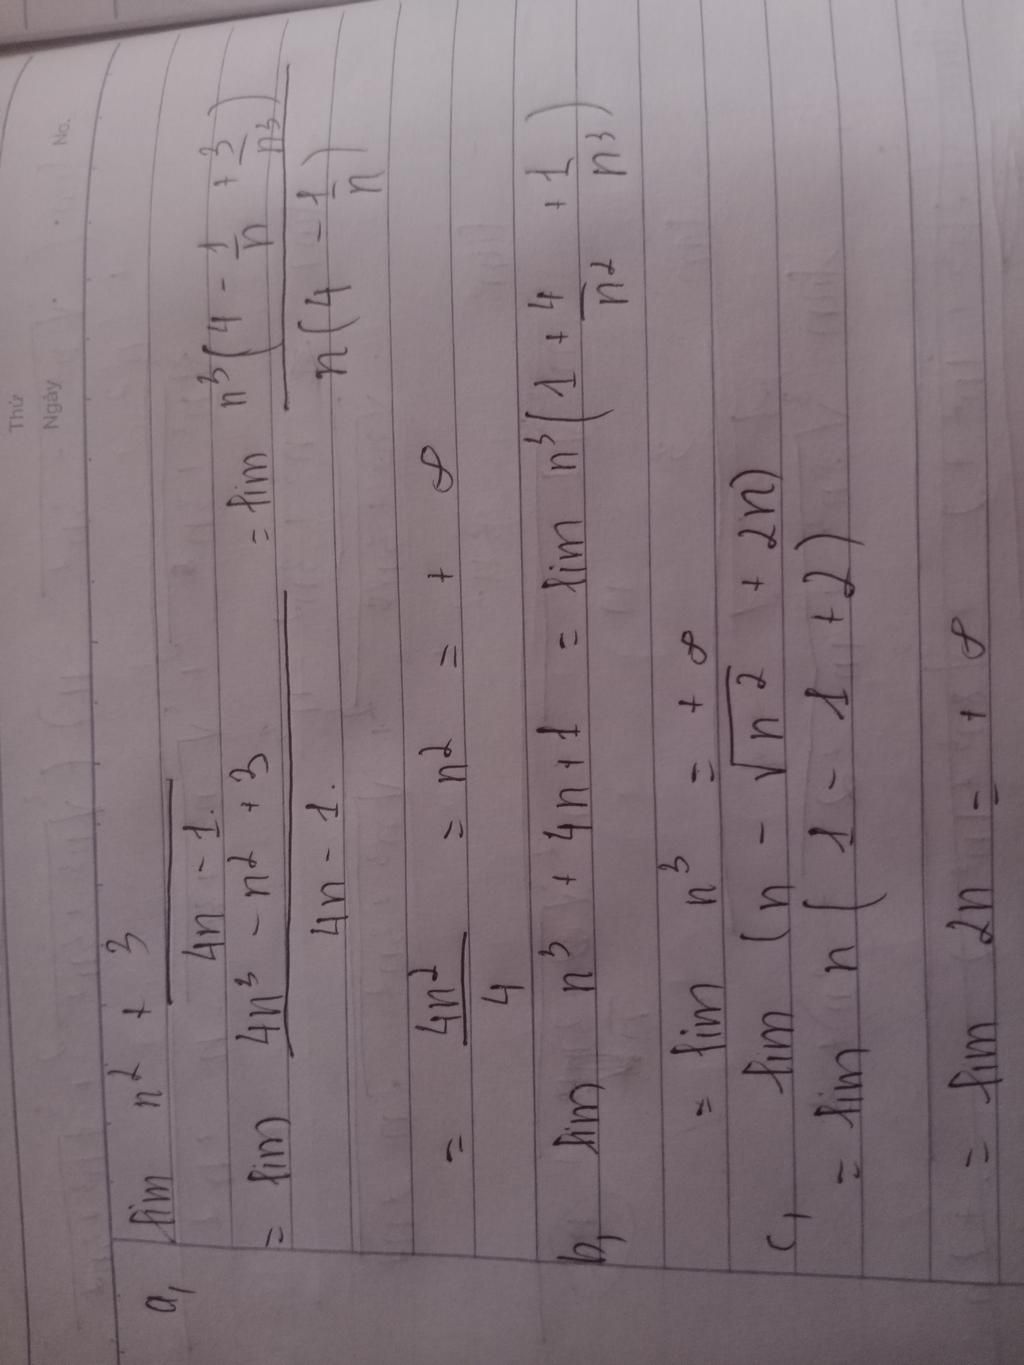 Thứ
Ngày No.
a, lim n² + 3 / 4n - 1.
= lim 4n³ - n² + 3 / 4n - 1. = lim n³(4 - 1/n + 3/n³) / n(4 - 1/n)
= 4n²/4 = n² = + ∞
b, lim n³ + 4n + 1 = lim n³(1 + 4/n² + 1/n³)
= lim n³ = + ∞
c, lim (n - √n² + 2n)
= lim n (1 - 1 + 2)
= lim 2n = + ∞